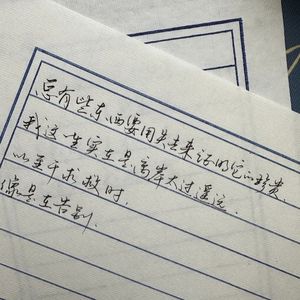 总有些东西要用失去来证明它的珍贵.
我这一生实在是离岸太过遥远.
以至于求救时.
像是在告别.